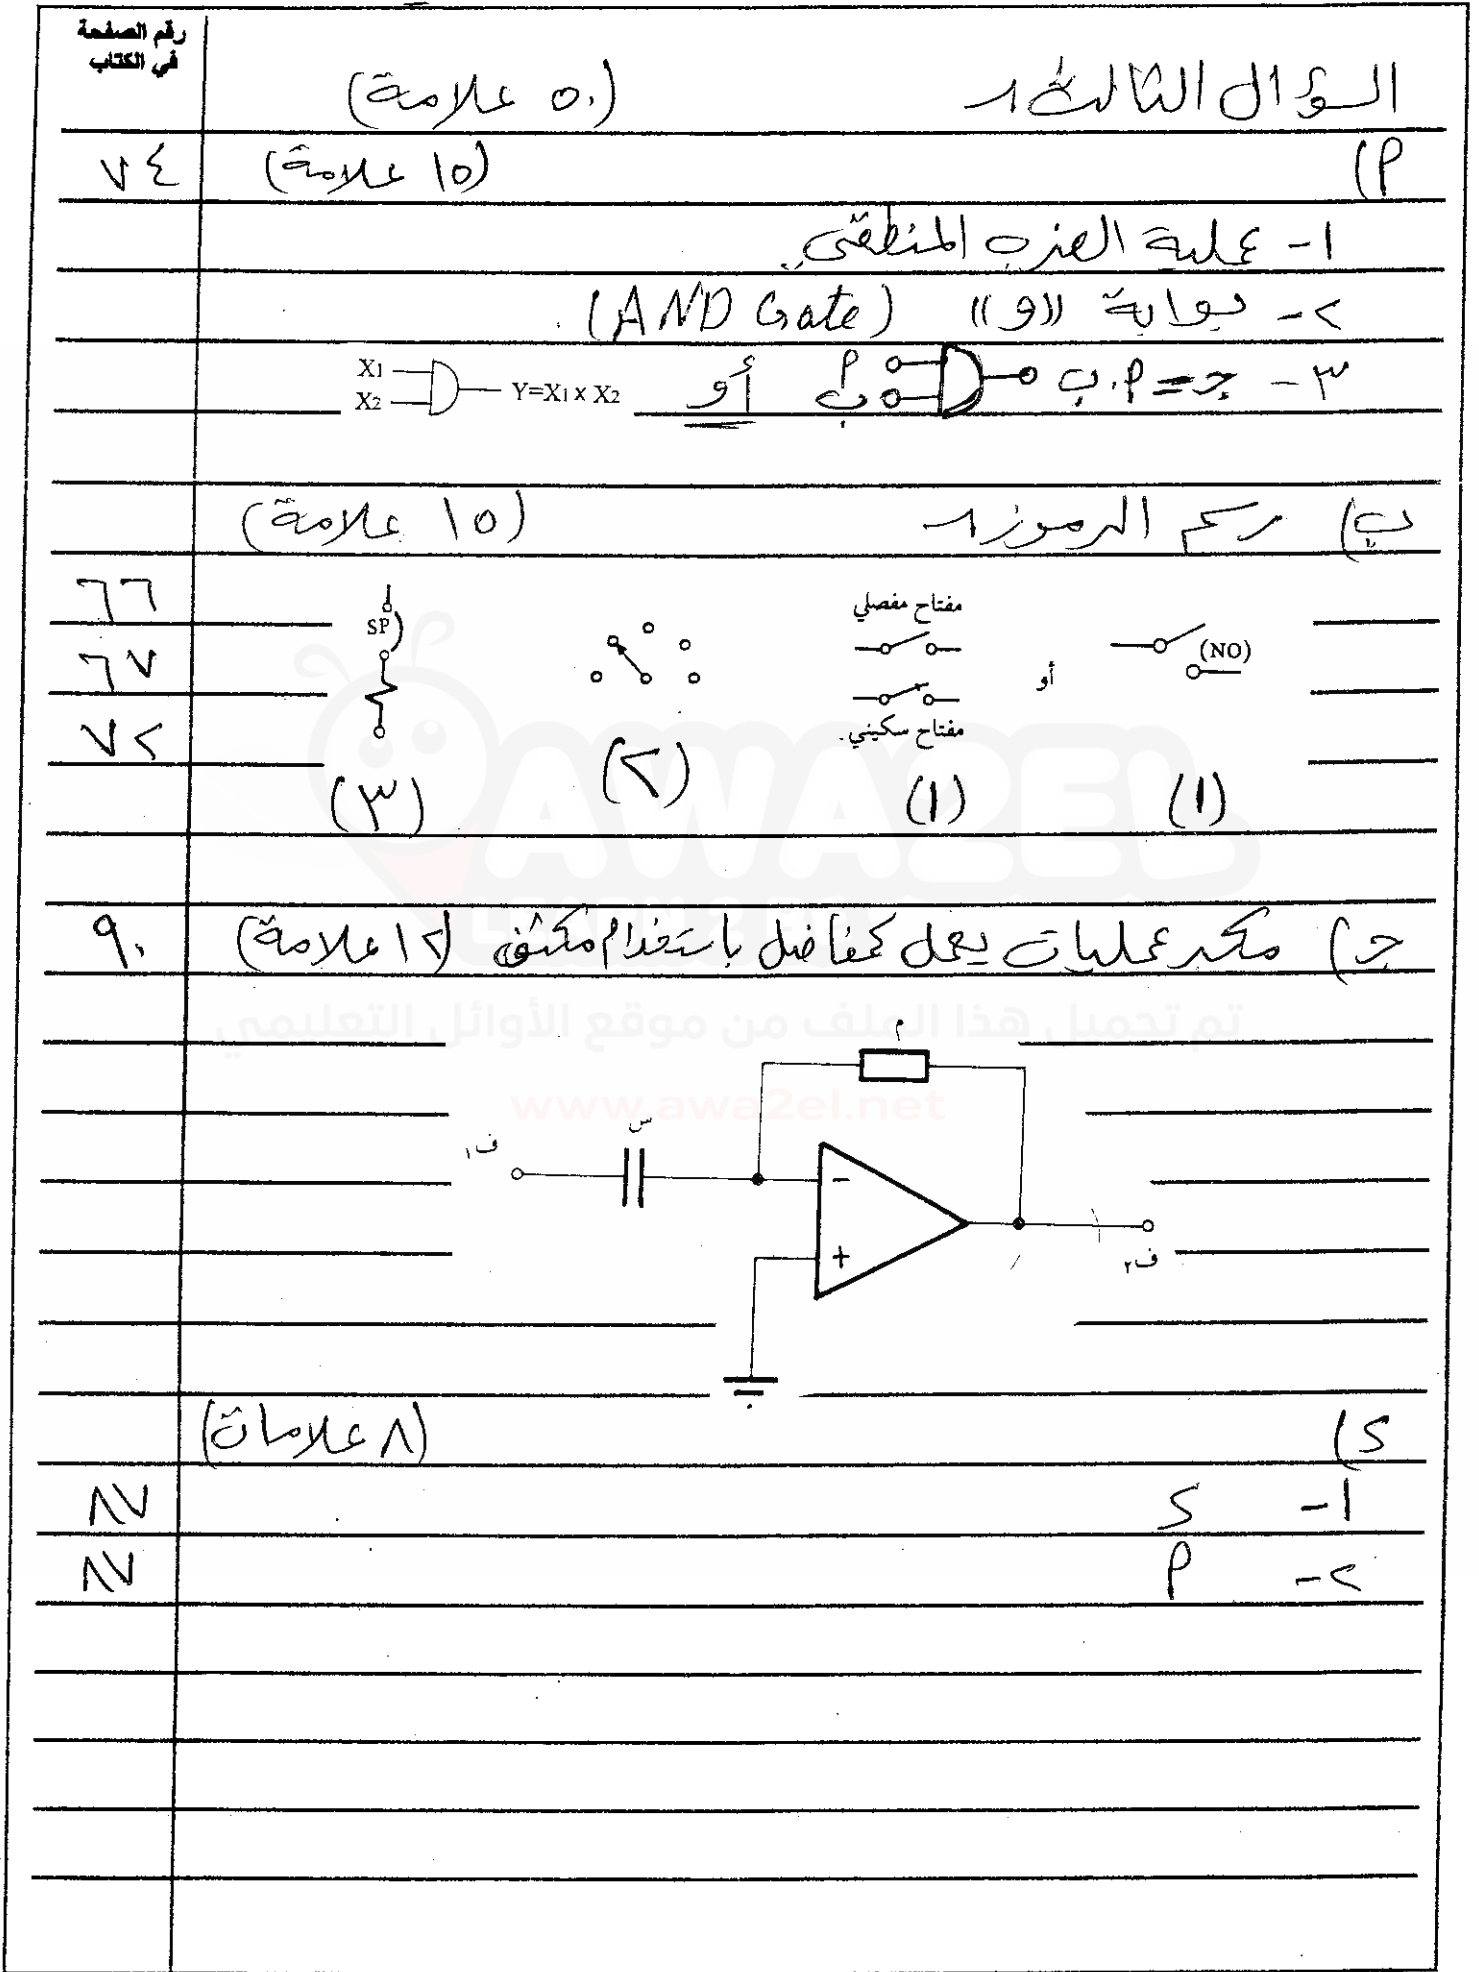 رقم الصفحة
في الكتاب
السؤال الثالث :- (٥٠ علامة)
أ) (١٥ علامة) ٧٤
١- عملية الضرب المنطقي.
٢- بوابة «و» (AND Gate).
٣- جـ = أ.ب أ ب أو X1 X2 Y=X1 x X2
ب) رسم الرموز :- (١٥ علامة)
٦٦
٦٧
٧٢
(NO)
أو
مفتاح مفصلي
مفتاح سكيني.
SP
(١) (١) (٢) (٣)
جـ) مكبر عمليات يعمل كمفاضل باستخدام مكثف (١٢ علامة) ٩٠
تم تحميل هذا الملف من موقع الأوائل التعليمي
www.awa2el.net
AWA2EL
م
س
ف١
-
+
ف٢
د) (٨ علامات)
١- د ٨٧
٢- أ ٨٧